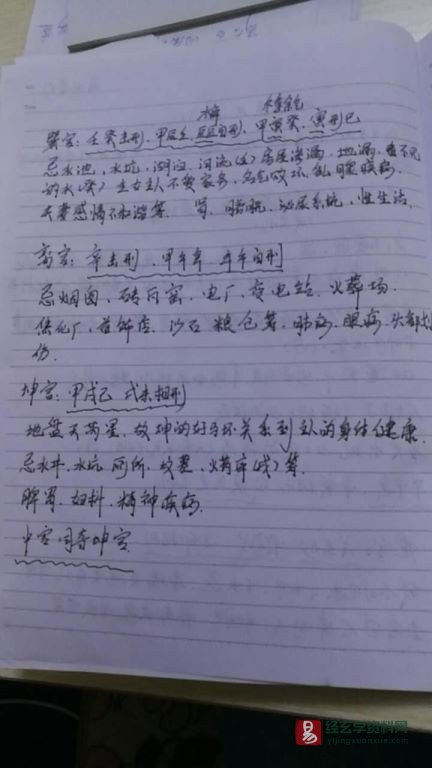 巽宫: 壬癸击刑. 甲辰壬 辰辰自刑. 甲寅癸. 寅刑巳
忌水池, 水坑, 湖泊. 河流(壬) 房屋渗漏. 地漏. 看不见
的水(癸) 主女主人不安家务, 名色败坏. 乱 腰疾病,
夫妻感情不和谐等. 肾. 膀胱. 泌尿系统, 性生活.
离宫: 辛击刑. 甲午辛 午午自刑
忌烟囱, 砖瓦窑, 电厂, 变电站. 火葬场.
炼化厂, 首饰店. 沙石 粮仓等, 肺病. 眼病. 头部划
伤.
坤宫: 甲戌己 戌未相刑
地盘天芮星, 故坤的好与坏关系到人的身体健康.
忌水井. 水坑 厕所. 坟墓.
脾胃. 妇科. 精神疾病.
中宫同寄坤宫
经玄学资料网
yijingxuanxue.com